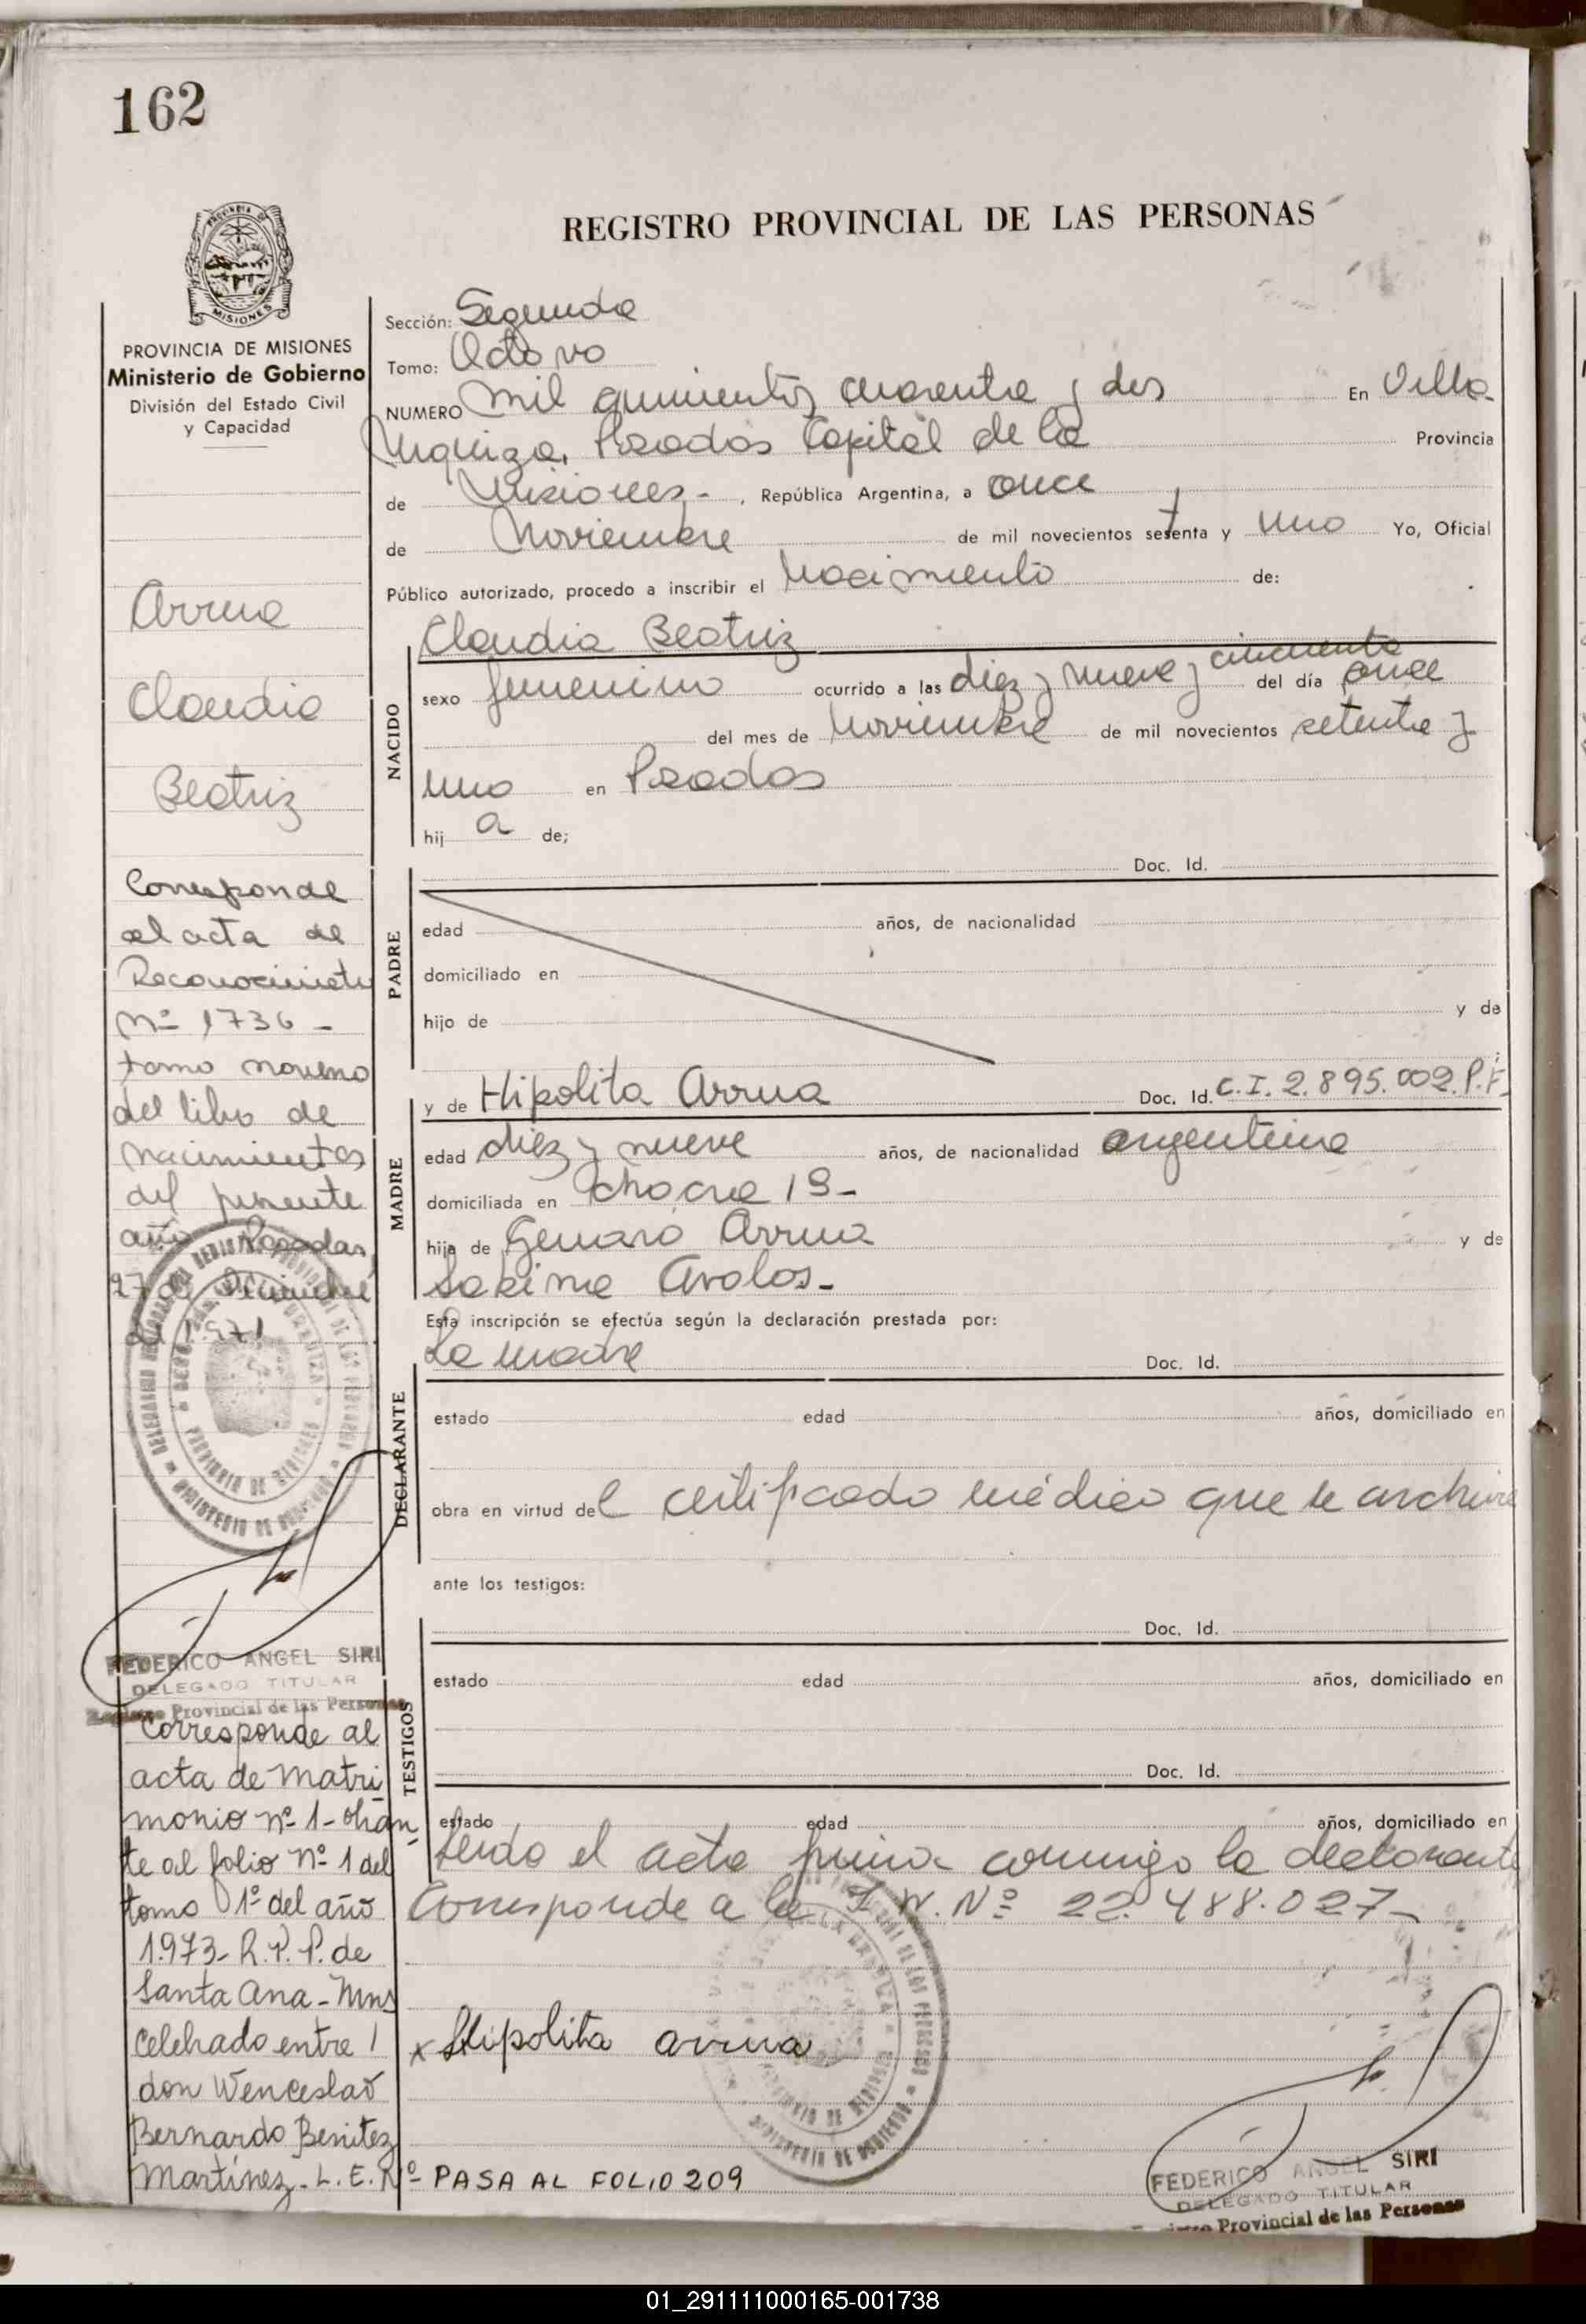 162
REGISTRO PROVINCIAL DE LAS PERSONAS
PROVINCIA DE
MISIONES
PROVINCIA DE MISIONES
Ministerio de Gobierno
División del Estado Civil
y Capacidad
Arrua
Claudia
Beatriz
Corresponde
al acta de
Reconocimiento
Nº 1736 -
tomo noveno
del libro de
nacimientos
del presente
año Posadas,
27 de Diciembre
de 1971
FEDERICO ANGEL SIRI
DELEGADO TITULAR
Registro Provincial de las Personas
Corresponde al
acta de matri
monio nº 1 - obran
te al folio nº 1 del
tomo 1º del año
1.973 - R.P.P. de
Santa Ana - Mns
celebrado entre
don Wenceslao
Bernardo Benitez
Martínez - L.E. Nº
Sección: Segunda
Tomo: Octavo
NUMERO Mil quinientos cuarenta y dos En Villa
Urquiza, Posadas Capital de la Provincia
de Misiones - , República Argentina, a once
de Noviembre de mil novecientos setenta y uno Yo, Oficial
Público autorizado, procedo a inscribir el Nacimiento de:
Claudia Beatriz
NACIDO
sexo femenino ocurrido a las diez y nueve y cincuenta del día once
del mes de Noviembre de mil novecientos setenta y
uno en Posadas
hij a de;
Doc. Id.
PADRE
edad años, de nacionalidad
domiciliado en
hijo de y de
MADRE
y de Hipolita Arrua Doc. Id. C.I. 2.895.002. P.F.
edad diez y nueve años, de nacionalidad argentina
domiciliada en chacra 19 -
hija de Genaro Arrua y de
Sabina Avalos -
Esta inscripción se efectúa según la declaración prestada por:
La madre Doc. Id.
DECLARANTE
estado edad años, domiciliado en
obra en virtud del certificado médico que se archiva
ante los testigos:
Doc. Id.
TESTIGOS
estado edad años, domiciliado en
Doc. Id.
estado edad años, domiciliado en
Leida el acta firma conmigo la declarante
Corresponde a la I.N. Nº 22.488.027 -
x Hipolita arrua
PASA AL FOLIO 209
FEDERICO ANGEL SIRI
DELEGADO TITULAR
Provincial de las Personas
01_291111000165-001738